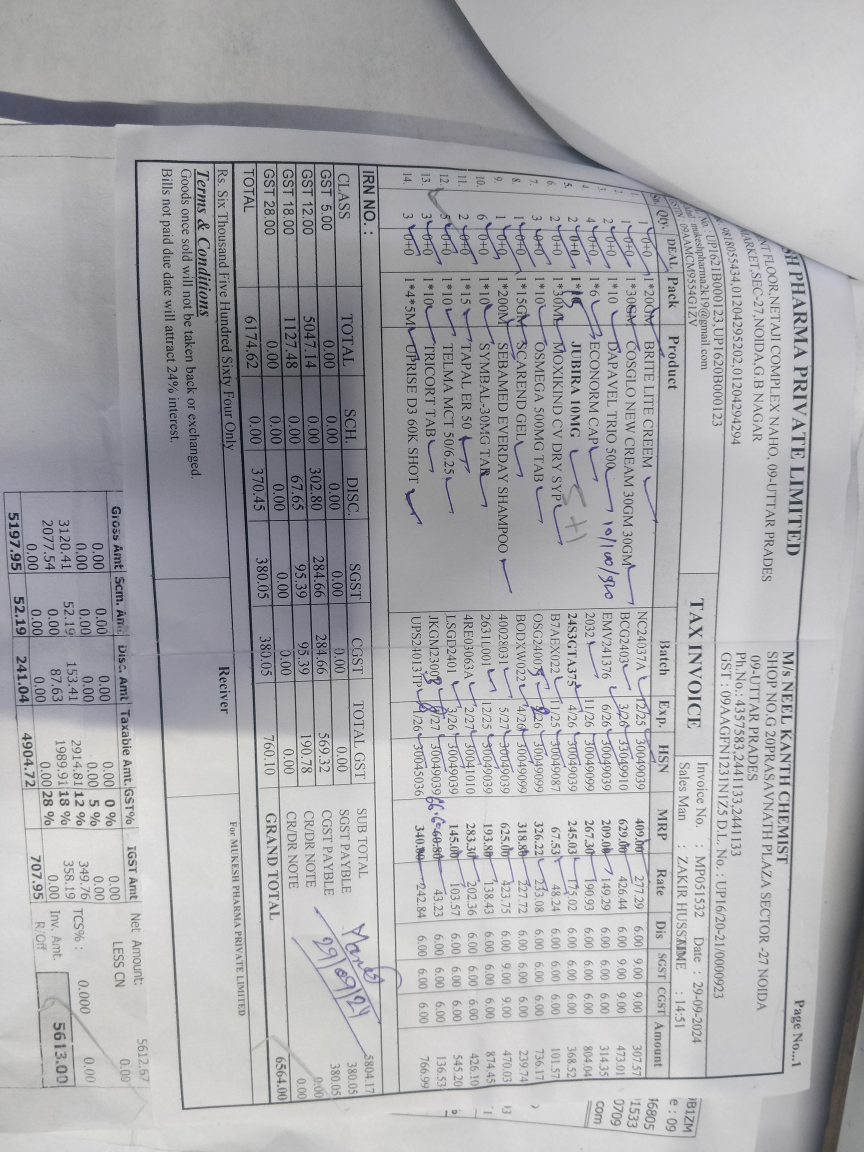 SH PHARMA PRIVATE LIMITED
NT FLOOR,NETAJI COMPLEX NAHO, 09-UTTAR PRADES
MARKET,SEC-27,NOIDA,G.B NAGAR
9818055434,01204295202,01204294294
No. : UP1621B000123,UP1620B000123
mukeshpharma2k19@gmail.com
09AAMCM9554G1ZV
Page No...1
M/s NEEL KANTH CHEMIST
SHOP NO.G 20PRASAVNATH PLAZA SECTOR -27 NOIDA
09-UTTAR PRADES
Ph.No.: 4357583,2441133,2441133
GST : 09AAGFN1231N1Z5 D.L. No. : UP16/20-21/0000923
TAX INVOICE
Invoice No. : MP051532 Date : 29-09-2024
Sales Man : ZAKIR HUSSAIN TIME : 14:51
Qty. DEAL Pack Product Batch Exp. HSN MRP Rate Dis SGST CGST Amount
1 0+0 1*20GM BRITE LITE CREEM NC24037A 12/25 30049039 409.00 277.29 6.00 9.00 9.00 307.57
1 0+0 1*30GM COSGLO NEW CREAM 30GM 30GM BCG2403 3/26 33049910 629.00 426.44 6.00 9.00 9.00 473.01
2 0+0 1*10 DAPAVEL TRIO 500 10/100/500 EMV241376 6/26 30049039 209.00 149.29 6.00 6.00 6.00 314.35
4 0+0 1*6 ECONORM CAP 2032 11/26 30049099 267.30 190.93 6.00 6.00 6.00 804.04
5. 2 0+0 JUBIRA 10MG 5+1 24S3GTA375 4/26 30049039 245.03 175.02 6.00 6.00 6.00 368.52
6. 2 0+0 1*30M MOXIKIND CV DRY SYP B7AEX022 11/25 30049087 67.53 48.24 6.00 6.00 6.00 101.57
7. 3 0+0 1*10 OSMEGA 500MG TAB 30049099 326.22 233.08 6.00 6.00 6.00 736.17
8. 1 0+0 1*15GM SCAREND GEL BODXW022 4/26 30049099 318.80 227.72 6.00 6.00 6.00 239.74
9. 1 0+0 1*200M SEBAMED EVERDAY SHAMPOO 4002803 5/27 30049039 625.00 423.75 6.00 9.00 9.00 470.03
10. 6 0+0 1*10 SYMBAL-30MG TAB 2631L001 12/25 30049039 193.80 138.43 6.00 6.00 6.00 874.45
11. 2 0+0 1*15 TAPAL ER 50 4RE03063A 2/27 30041010 283.30 202.36 6.00 6.00 6.00 426.10
12. 5 0+0 1*10 TELMA MCT 50/6.25 LSGD2401 3/26 30049039 145.00 103.57 6.00 6.00 6.00 545.20
13. 3 0+0 1*10 TRICORT TAB 30049039 43.23 6.00 6.00 6.00 136.53
14. 3 0+0 1*4*5M UPRISE D3 60K SHOT UPS24013TP 30045036 340.00 242.84 6.00 6.00 6.00 766.99
IRN NO. :
CLASS TOTAL SCH. DISC. SGST CGST TOTAL GST
GST 5.00 0.00 0.00 0.00 0.00 0.00 0.00
GST 12.00 5047.14 0.00 302.80 284.66 284.66 569.32
GST 18.00 1127.48 0.00 67.65 95.39 95.39 190.78
GST 28.00 0.00 0.00 0.00 0.00 0.00 0.00
TOTAL 6174.62 0.00 370.45 380.05 380.05 760.10
SUB TOTAL 5804.17
SGST PAYBLE 380.05
CGST PAYBLE 380.05
CR/DR NOTE 0.00
CR/DR NOTE 0.00
GRAND TOTAL 6564.00
29/09/24
Rs. Six Thousand Five Hundred Sixty Four Only
Terms & Conditions
Goods once sold will not be taken back or exchanged.
Bills not paid due date will attract 24% interest.
Reciver
For MUKESH PHARMA PRIVATE LIMITED
Gross Amt Scm. Am Disc. Amt Taxable Amt. GST% IGST Amt
0.00 0.00 0.00 0.00 0 % 0.00
0.00 0.00 0.00 0.00 5 % 0.00
3120.41 52.19 153.41 2914.81 12 % 349.76
2077.54 0.00 87.63 1989.91 18 % 358.19
0.00 0.00 0.00 0.00 28 % 0.00
5197.95 52.19 241.04 4904.72 707.95
Net Amount: 5612.67
LESS CN 0.00
TCS% : 0.000 0.00
Inv. Amt. 5613.00
R/Off
B1ZM
e : 09
16805
1533
0709
com